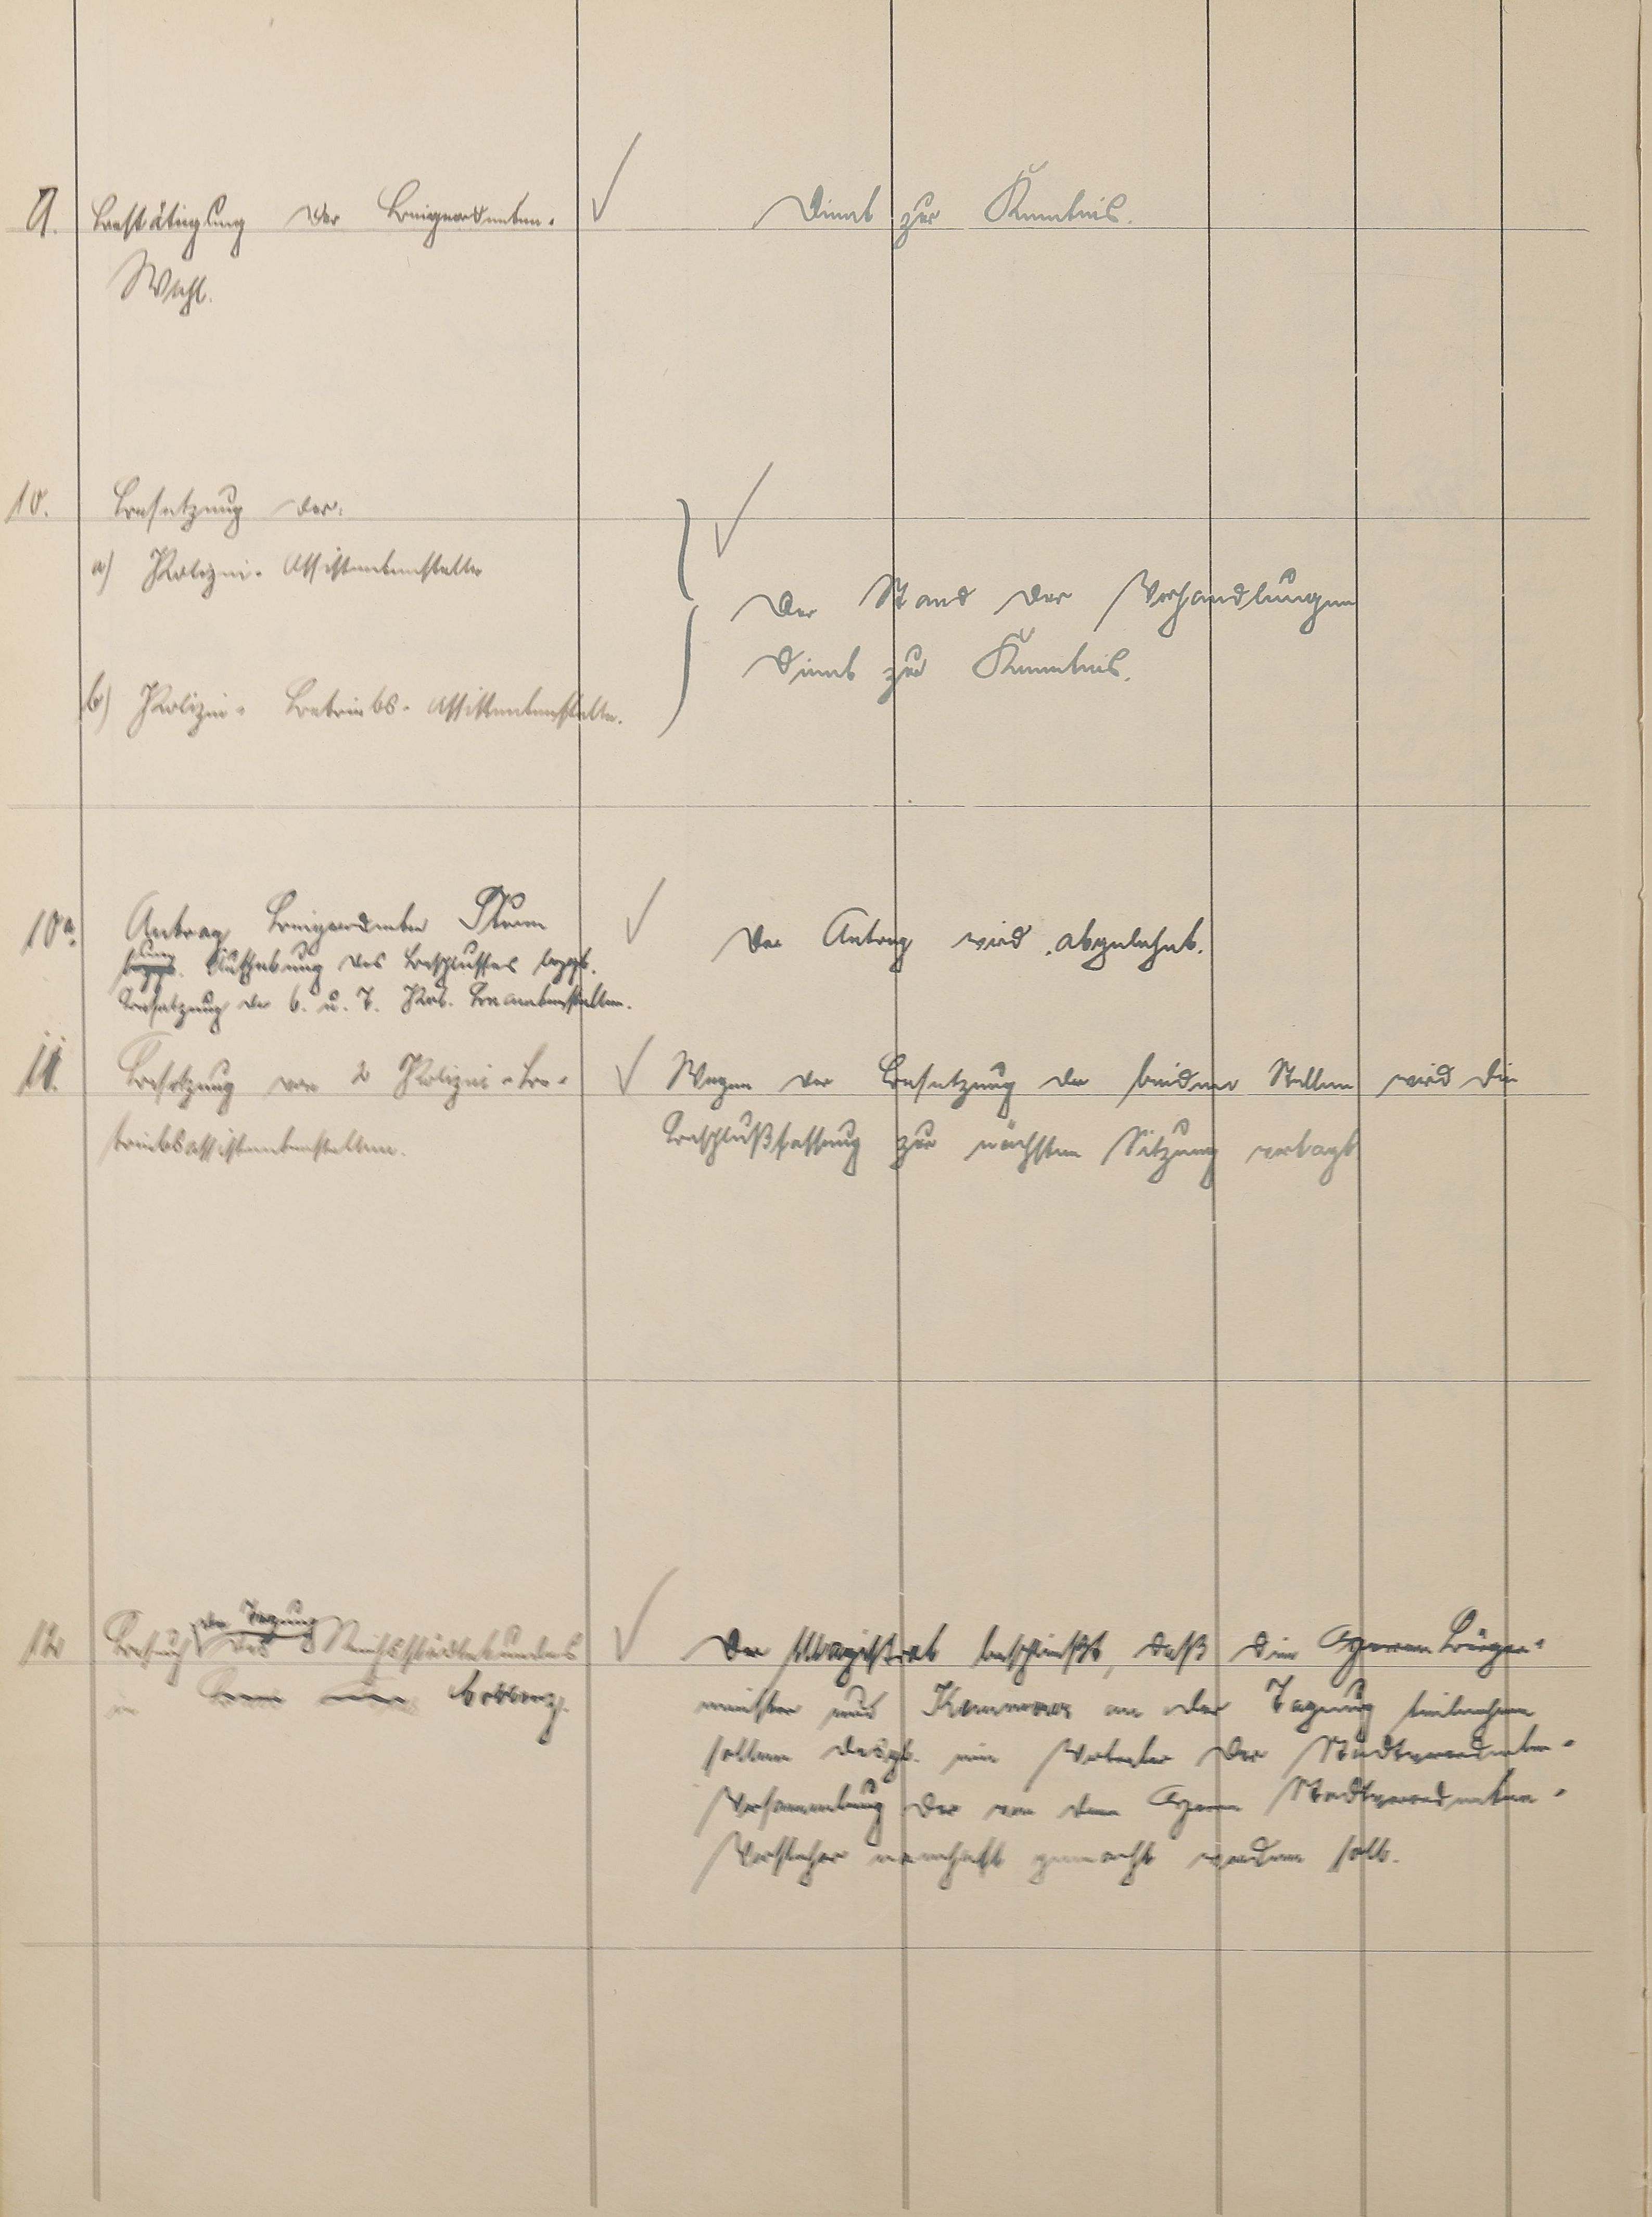 9. Bestätigung der Beigeordneten-
Wahl.
Dient zur Kenntnis.
10. Besetzung der:
a) Polizei-Assistentenstelle
b) Polizei-Betriebs-Assistentenstelle.
Der Stand der Verhandlungen
dient zur Kenntnis.
10a. Antrag Beigeordneter Sturm
Aufhebung des Beschlusses bezgl.
Besetzung der 6. u. 7. Pol. Beamtenstellen.
Der Antrag wird abgelehnt.
11. Besetzung von 2 Polizei-Be-
triebsassistentenstellen.
Wegen der Besetzung der beiden Stellen wird die
Beschlußfassung zur nächsten Sitzung vertagt
12 Besuch der Tagung des Reichsstädtebundes
in Coblenz.
Der Magistrat beschließt, daß die Herren Bürger-
meister und an der Tagung teilnehmen
sollen desgl. ein Vertreter der Stadtverordneten-
Versammlung der von dem Herrn Stadtverordneten-
Vorsteher namhaft gemacht werden soll.